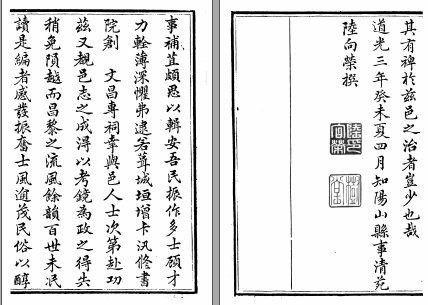 事補苴頗思以輯安吾民振作多士顧才
力輇薄深懼弗逮若葺城垣增卡汛修書
院創 文昌專祠幸與邑人士次第赴功
茲又覩邑志之成得以考鏡為政之得失
稍免隕越而昌黎之流風餘韻百世未泯
讀是編者感發振奮士風遒茂民俗以醇
其有裨於茲邑之治者豈少也哉
道光三年癸未夏四月知陽山縣事清苑
陸向榮撰